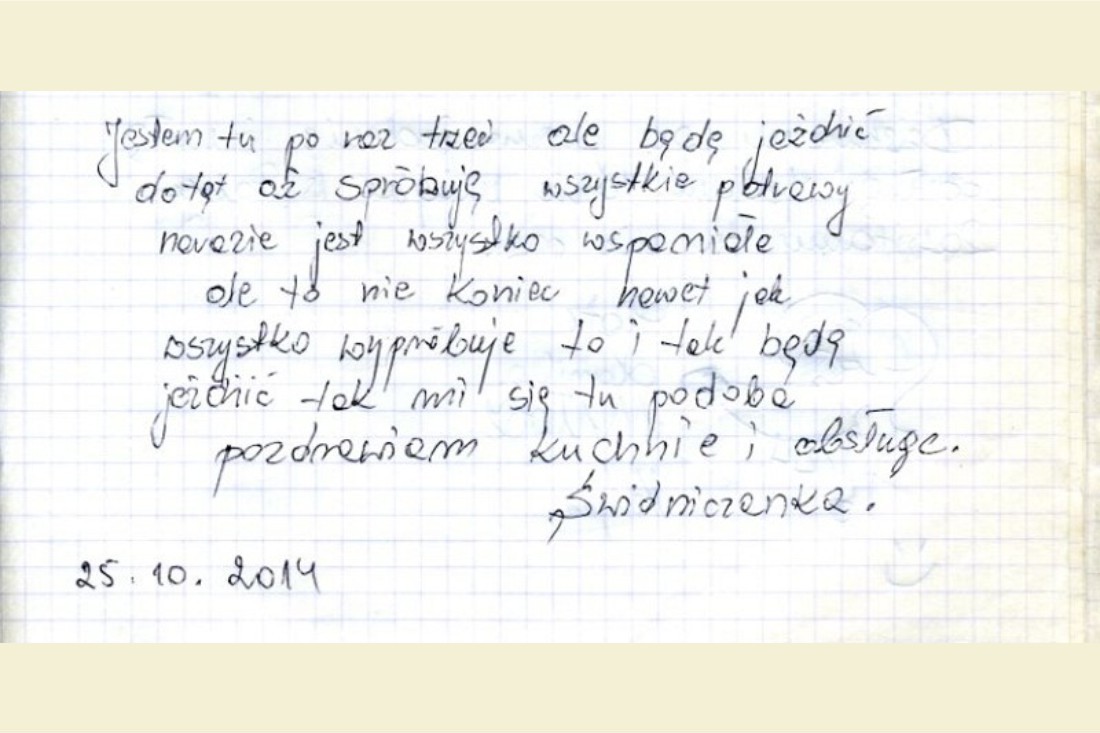 Jestem tu po raz trzeci ale będę jeździć
dotąt aż spróbuję wszystkie potrawy
narazie jest wszystko wspaniałe
ale to nie koniec nawet jak
wszystko wypróbuje to i tak będę
jeździć tak mi się tu podoba
pozdrawiam kuchnie i obsługe.
Świdniczanka.
25.10.2014